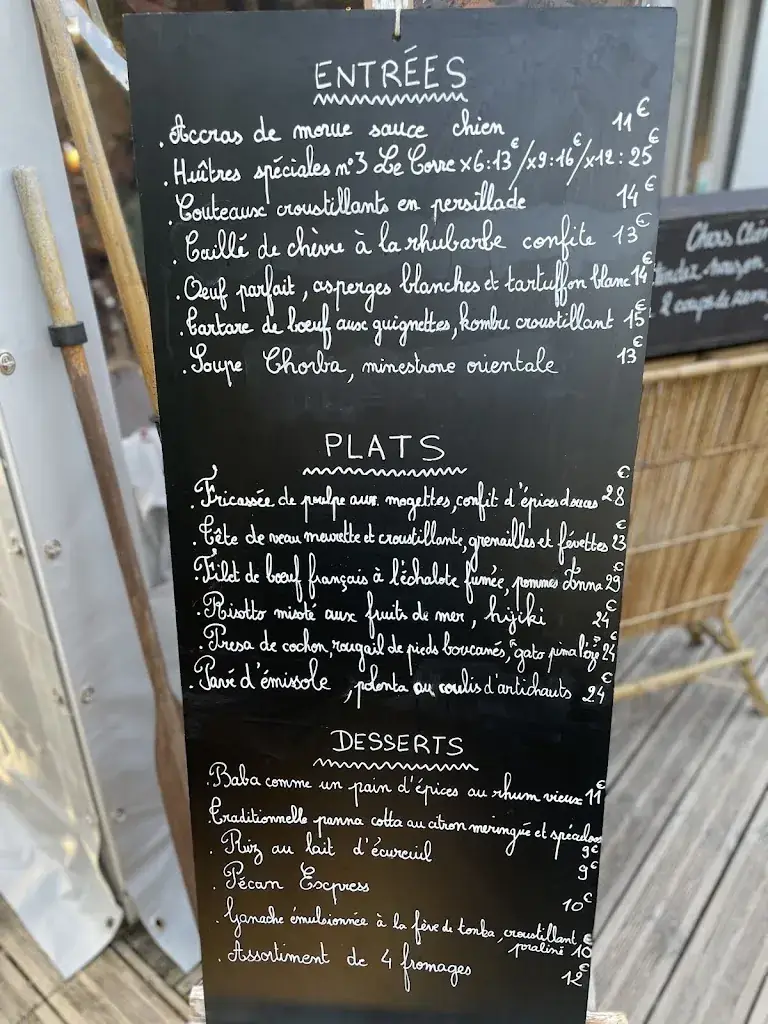 ENTRÉES
. Accras de morue sauce chien 11€
. Huîtres spéciales n°3 Le Corre x6:13€/x9:16€/x12:25€
. Couteaux croustillants en persillade 14€
. Caillé de chèvre à la rhubarbe confite 13€
. Oeuf parfait, asperges blanches et tartuffon blanc 14€
. Tartare de boeuf aux guignettes, kombu croustillant 15€
. Soupe Chorba, minestrone orientale 13€
PLATS
. Fricassée de poulpe aux mogettes, confit d'épices douces 28€
. Tête de veau meurette et croustillante, grenailles et févettes 23€
. Filet de boeuf français à l'échalote fumée, pommes Anna 29€
. Risotto misoté aux fruits de mer, hijiki 24€
. Presa de cochon, rougail de pieds boucanés, "gato pima l'özé" 24€
. Pavé d'émissole, polenta au coulis d'artichauts 24€
DESSERTS
. Baba comme un pain d'épices au rhum vieux 11€
. Traditionnelle panna cotta au citron meringué et spéculoos 9€
. Riz au lait d'écureuil 9€
. Pécan Express 10€
. Ganache émulsionnée à la fève de tonka, croustillant praliné 10€
. Assortiment de 4 fromages 12€
Chers Clien